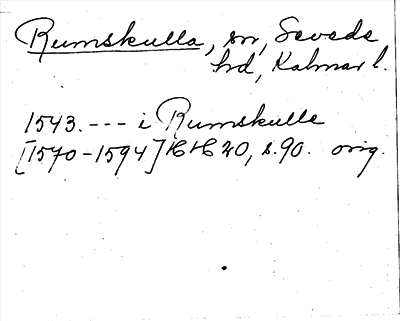 Rumskulla, sn, Sevede
hd, Kalmar l.
1543. --- i Rumskulle
[1570-1594] HH 20, s. 90. orig.